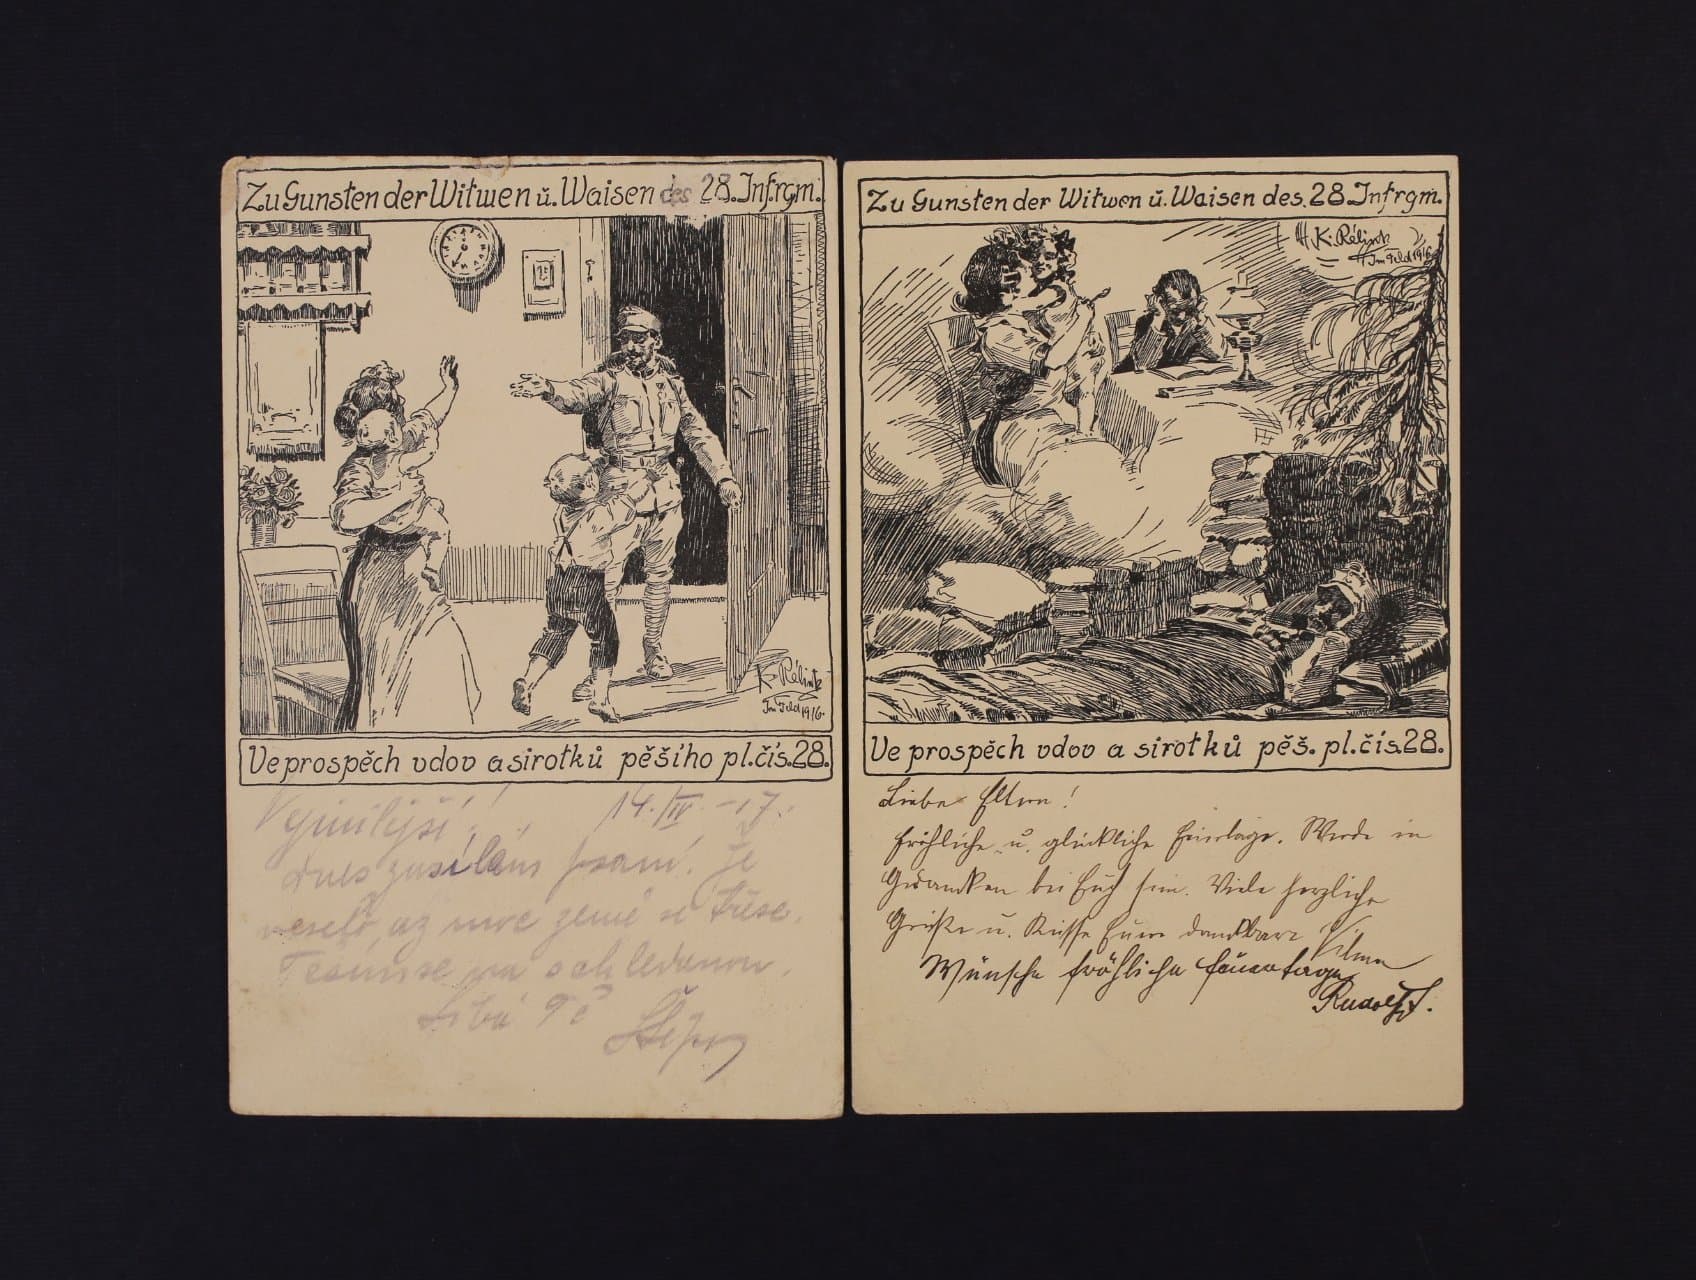 Zu Gunsten der Witwen ŭ. Waisen des 28. Inf.rgm.
K. Rélink
Im Feld 1916.
Ve prospěch vdov a sirotků pěšího pl. čís. 28.
14./IV. -17.
dnes zasílám psaní. Je
veselo, až mre země se třese.
na schledanou.
Líbá Tě
Zu Gunsten der Witwen ŭ. Waisen des. 28 Infrgm.
K. Rélink
Im Feld 1916
Ve prospěch vdov a sirotků pěš. pl. čís. 28.
Liebe Eltern!
Fröhliche u. glückliche Feiertage. Werde in
Gedanken bei Euch sein. Viele herzliche
Grüße u. Küsse Eure dankbare Vilma
Wünsche fröhliche Feiertage
Rudolf